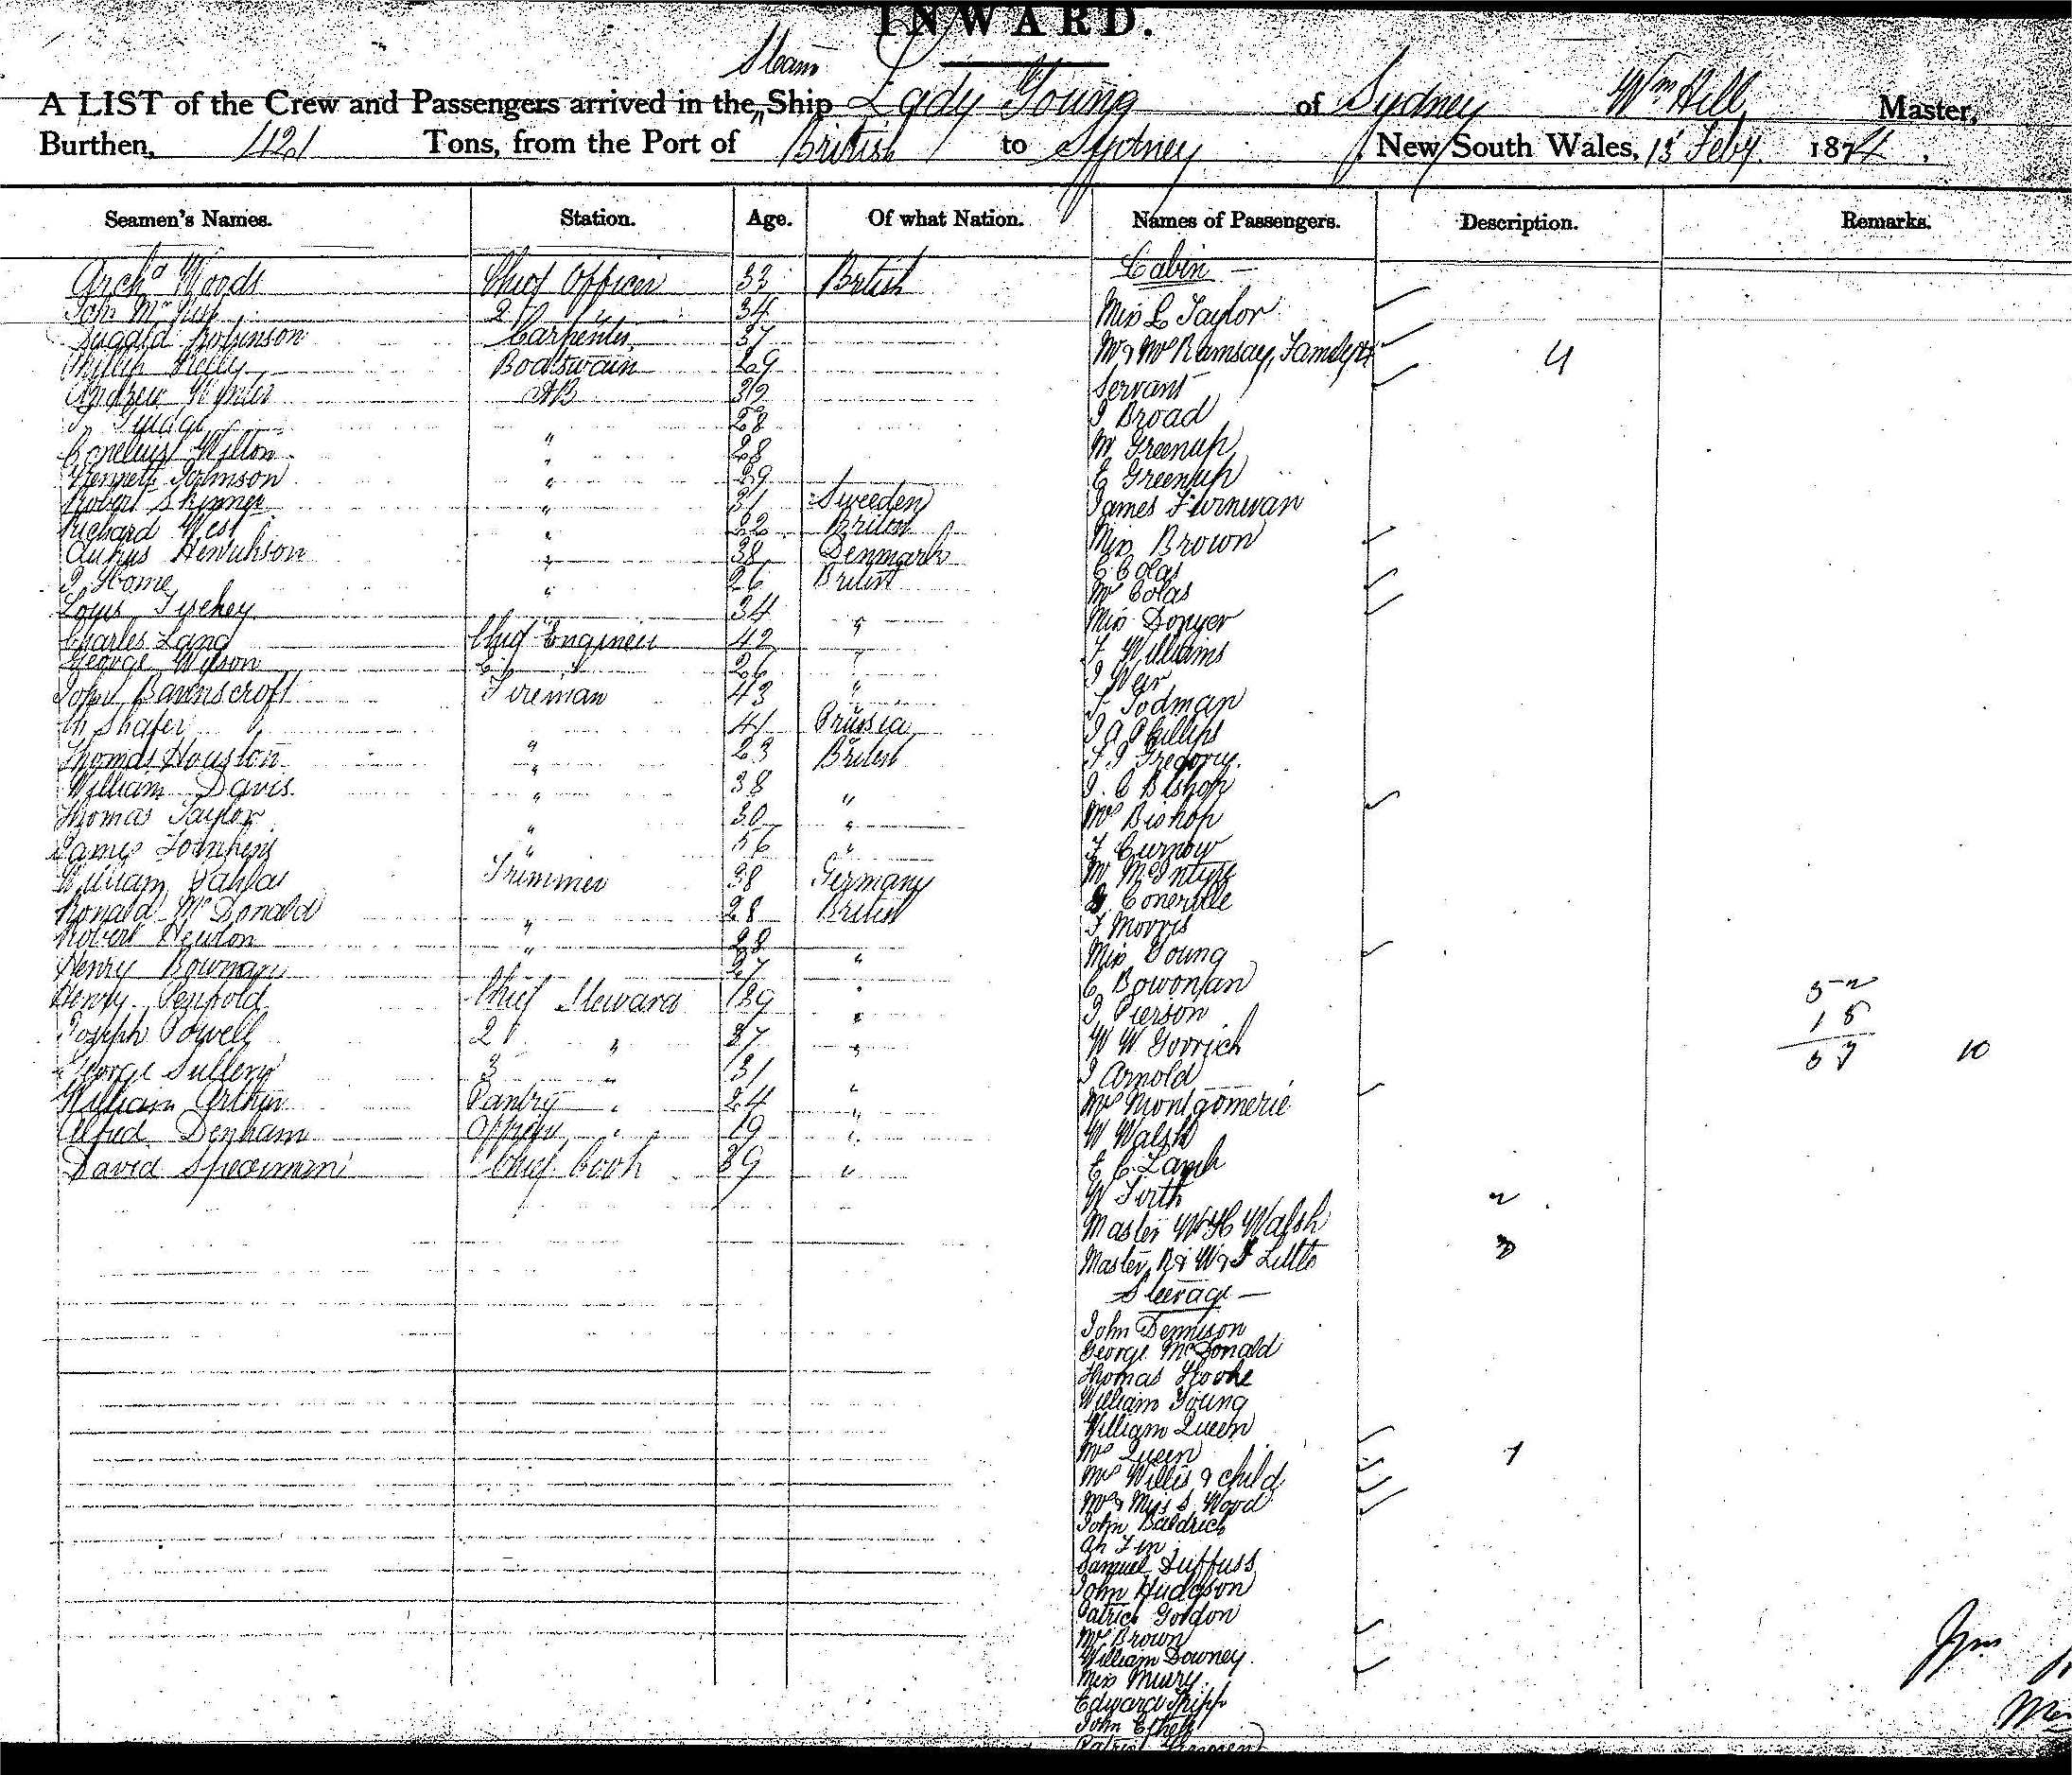 INWARD.
Steam
A LIST of the Crew and Passengers arrived in the Ship Lady Young of Sydney Wm Hill Master,
Burthen, 421 Tons, from the Port of British to Sydney, New South Wales, 15 Feby 1874.
Seamen's Names. Station. Age. Of what Nation. Names of Passengers. Description. Remarks.
Cabin
Archd Woods Chief Officer 33 British
John Mc 2 " 34 Miss L Taylor
Robinson Carpenter 37 Mr & Mrs Ramsay, 4
Phillip Kelly Boatswain 29 Servant
Andrew AB 32 J Broad
28 M Greenup
Cornelius Wilton " 28 E Greenup
Kenneth Johnson " 29 James
Robert Skinner " 31 Sweeden Miss Brown
Richard West " 22 British C Colas
Henrickson " 38 Denmark Mrs Colas
J Home " 26 British Miss
Louis 34 F Williams
Charles Lang Chief Engineer 42 " J Weir
George Wilson 2 " 26 " T Todman
John Ravenscroft Fireman 43 " J A Phillips
Shafer 41 Prussia F J Gregory
Thomas Houston " 23 British J. C Bishop
William Davis " 38 Mrs Bishop
Thomas Taylor " 30 " F Curnow
James Tompkins " 56 " M McIntyre
William Trimmer 38 Germany
Ronald McDonald " 28 British F Morris
Robert Newton " 28 Miss Young
Henry Bowman 27 " C Bowonlan
Henry Penfold Chief Steward 39 " J Pierson 52
Joseph Powell 2 " 37 " W W Gorrich 15
George Sullery 3 " 31 J Arnold 67 10
William Arthur Pantry " 24 " Mrs Montgomerie
Alfred Denham " 19 " W Walsh
David Speerman Chief Cook 39 " E C Lamb
W Firth
Master W H Walsh 2
Master R & W & J Little 3
Steerage
John Dennison
George McDonald
Thomas Hooke
William Young
William Queen
Mrs Queen
Mrs Willis & child 1
Mrs & Miss S Wood
John Baldrich
Ah Fin
Samuel Duffuss
John Hudgson
Patrick Gordon
Mrs Brown
William Downey
Miss Murry
Edward Tripp
John
Wm